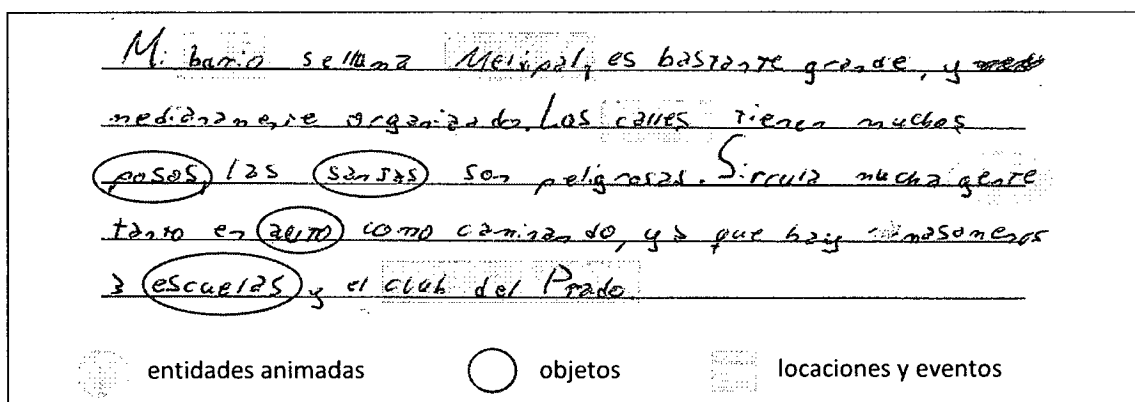 Mi barrio sellama Melipal, es bastante grande, y
medianamente organizado. Las calles tienen muchos
posos, las sansas son peligrosas. Sircula mucha gente
tanto en auto como caminando, ya que hay masomenos
3 escuelas y el club del Prado.
entidades animadas objetos locaciones y eventos